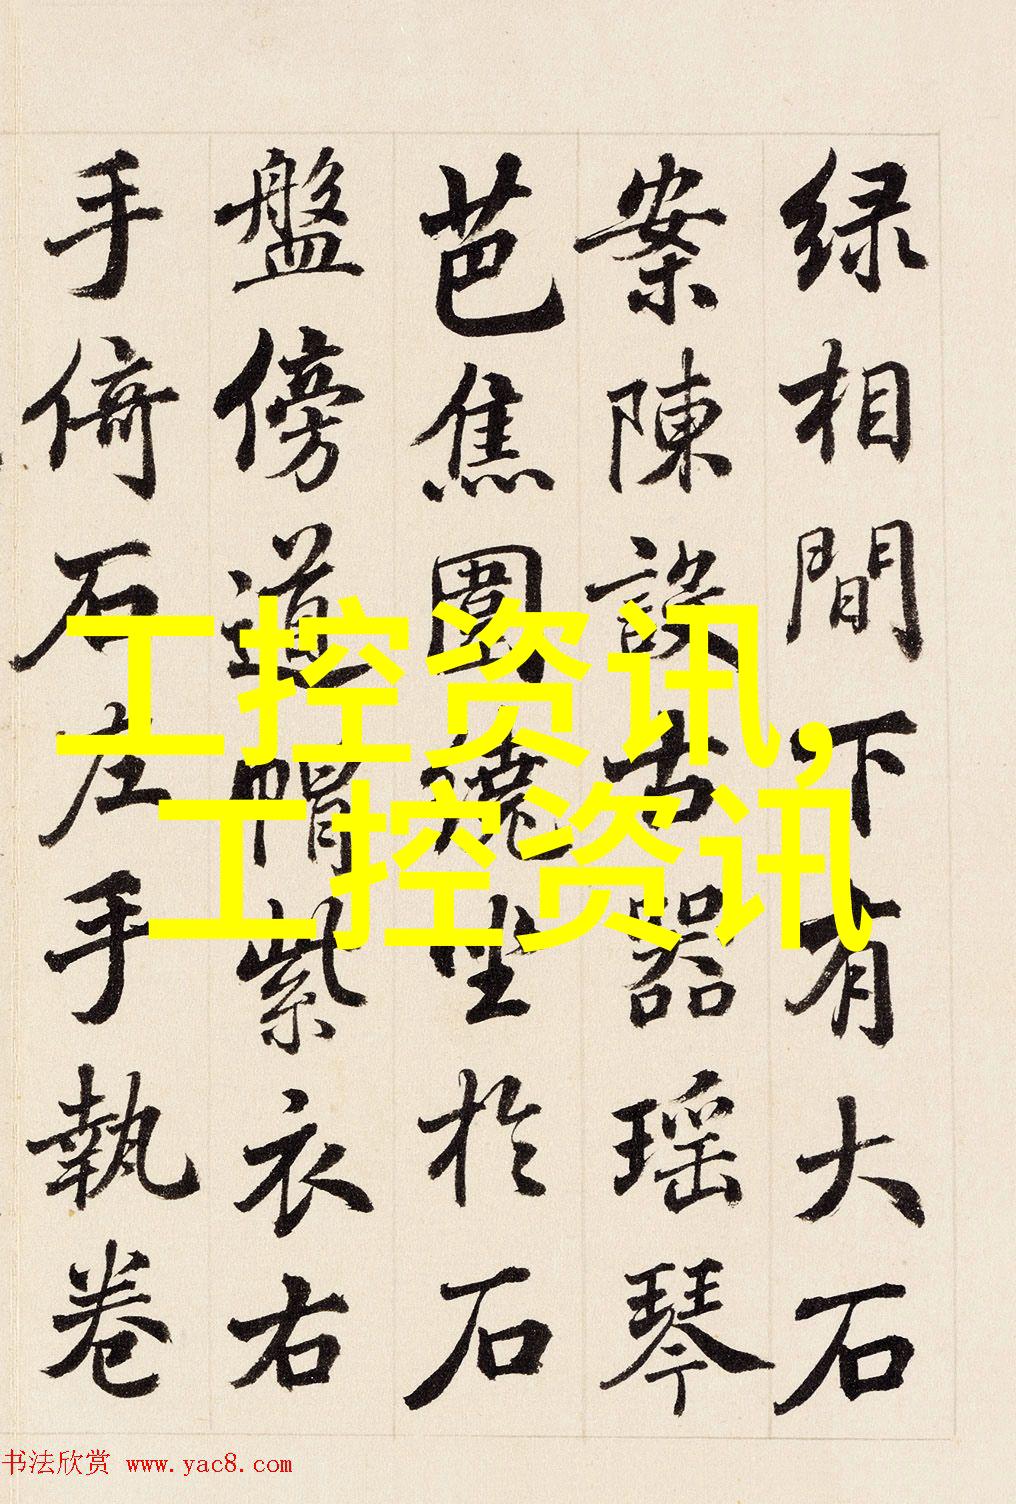 绿相間下有大石
案陳設古器瑶琴
芭焦圍繞坐於石
盤傍道帽紫衣右
手倚石左手執卷
工控资讯,
工控资讯
书法欣赏 www.yac8.com